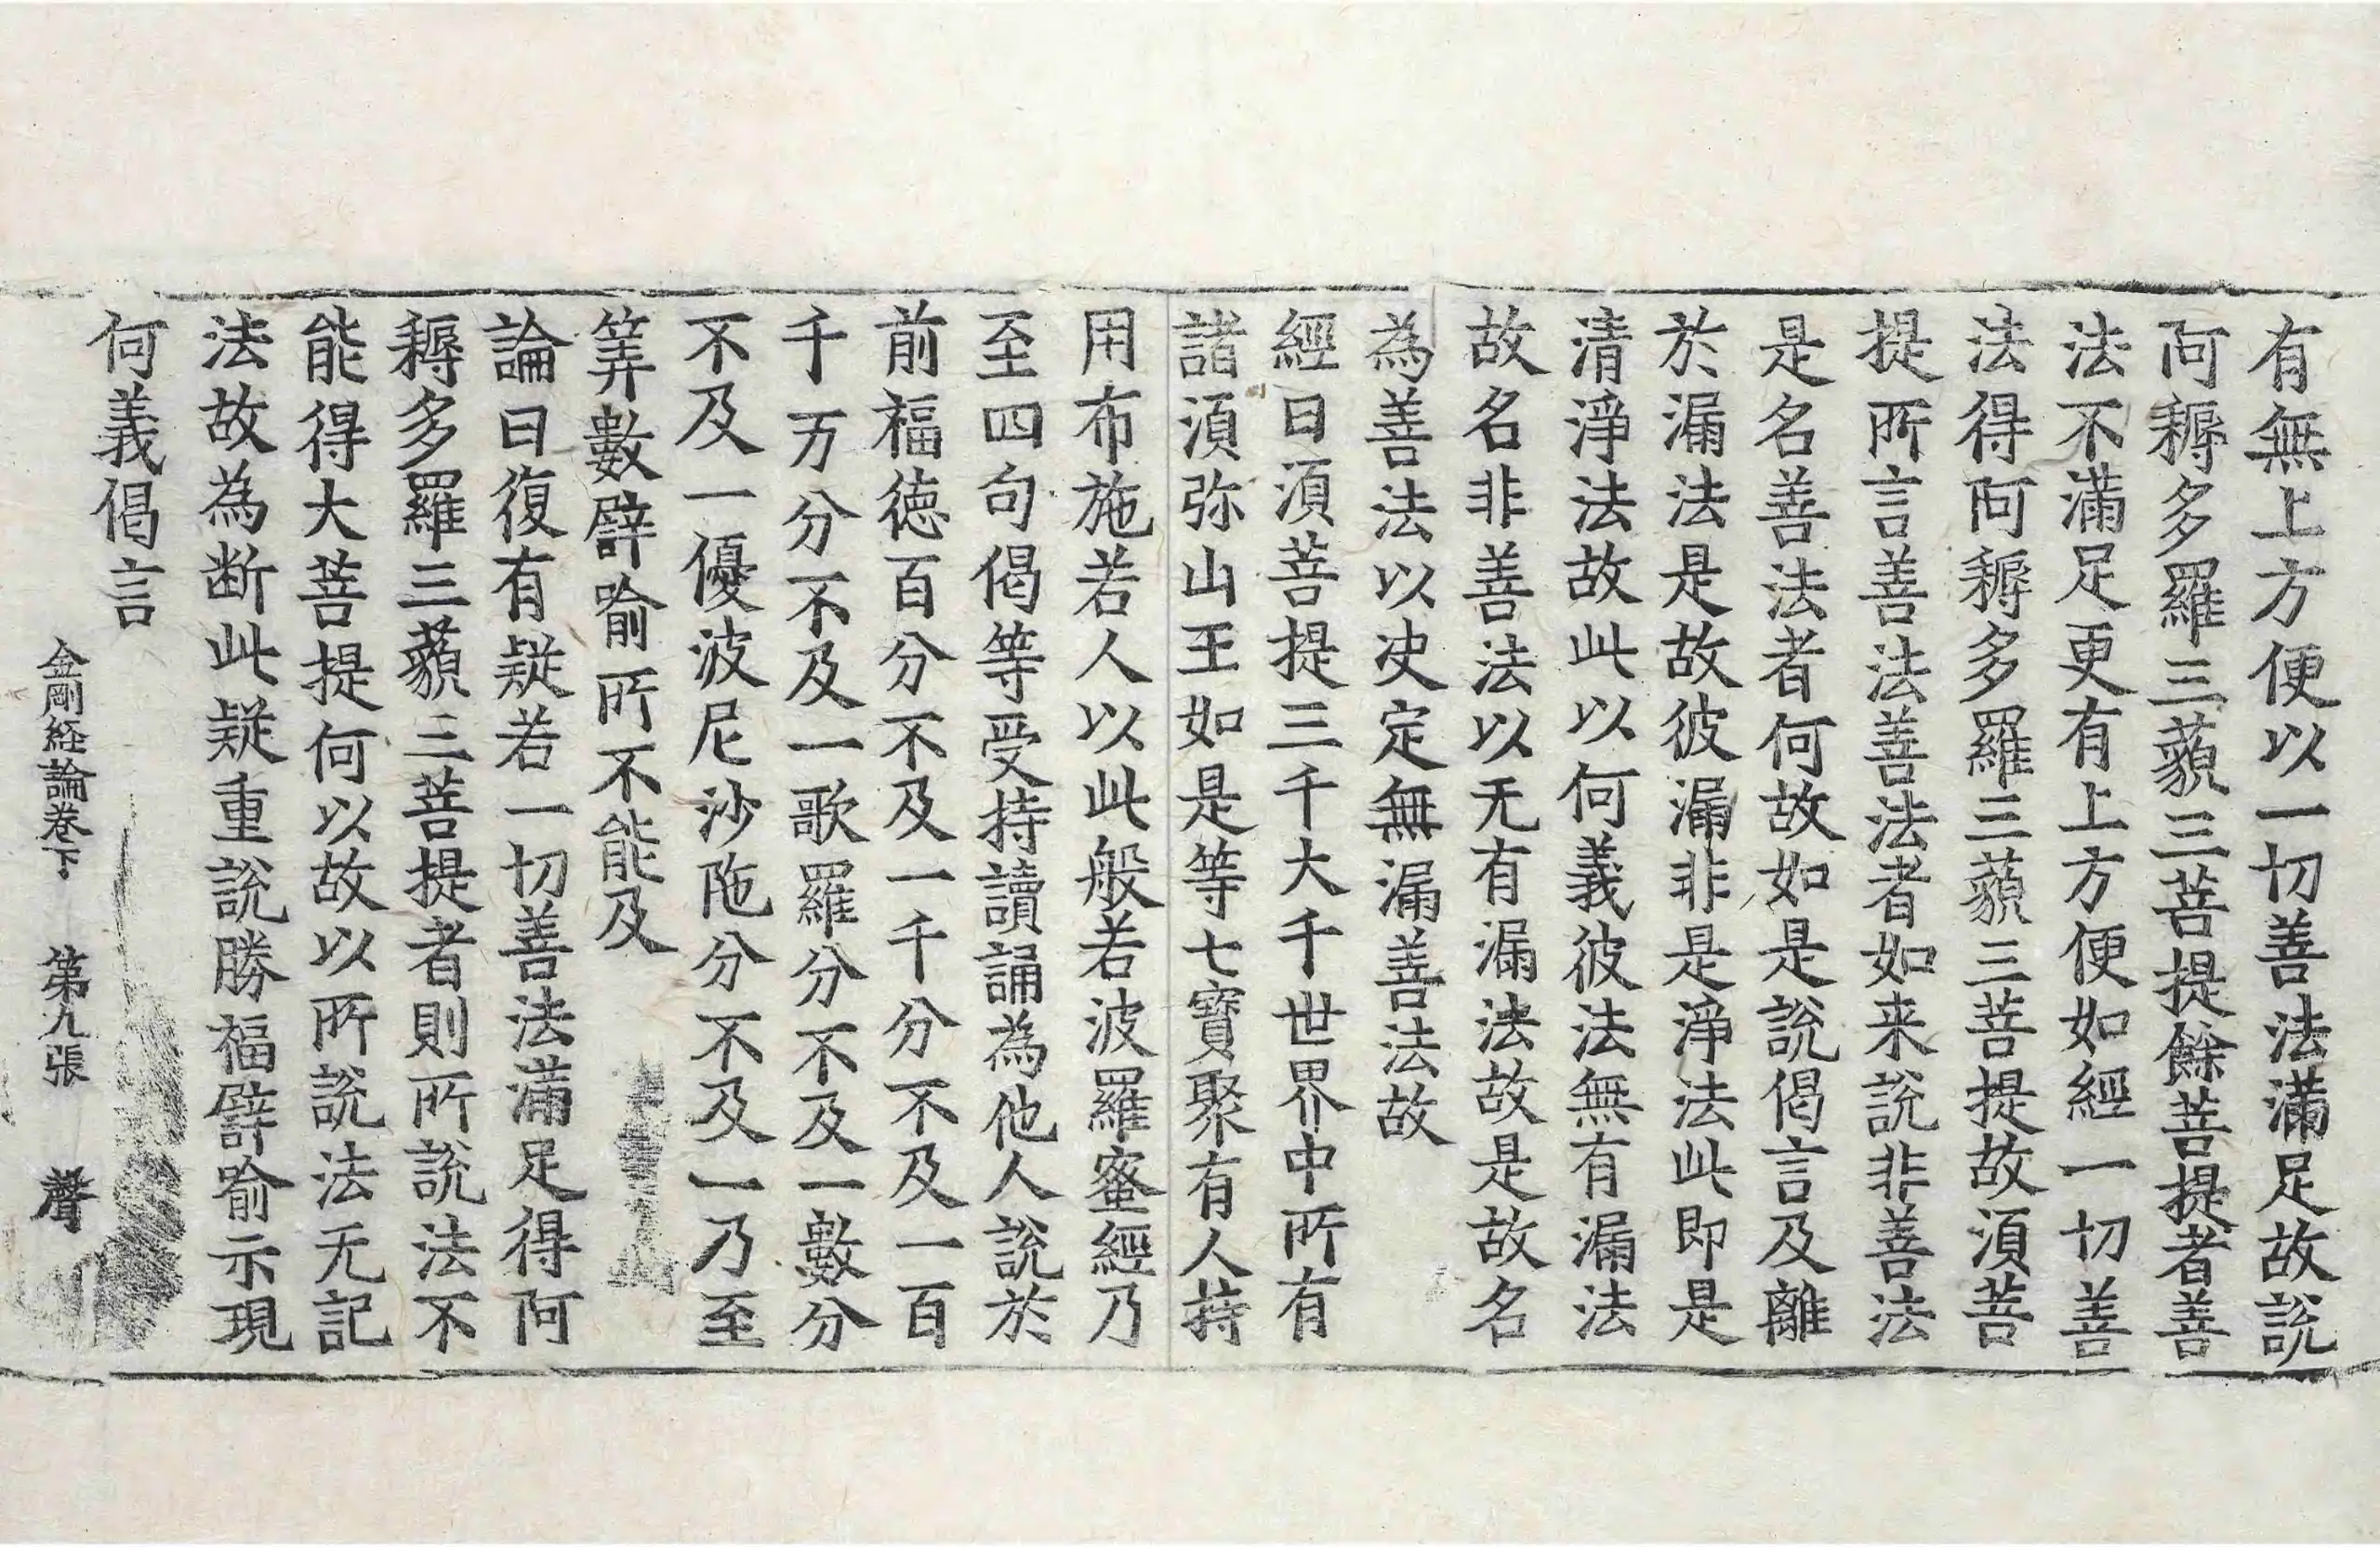 有無上方便以一切善法滿足故說
阿耨多羅三藐三菩提餘菩提者善
法不滿足更有上方便如經一切善
法得阿耨多羅三藐三菩提故湏菩
提所言善法善法者如来說非善法
是名善法者何故如是說偈言及離
於漏法是故彼漏非是淨法此即是
清淨法故此以何義彼法無有漏法
故名非善法以无有漏法故是故名
為善法以决定無漏善法故
經曰湏菩提三千大千世界中所有
諸湏弥山王如是等七寳聚有人持
用布施若人以此般若波羅蜜經乃
至四句偈等受持讀誦為他人說於
前福徳百分不及一千分不及一百
千万分不及一歌羅分不及一數分
不及一優波尼沙陁分不及一乃至
筭數譬喻所不能及
論曰復有疑若一切善法滿足得阿
耨多羅三藐三菩提者則所說法不
能得大菩提何以故以所說法无記
法故為断此疑重說勝福譬喻示現
何義偈言
金剛経論巻下 第九張 聲